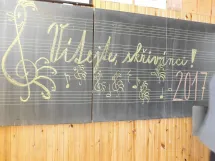 Vítejte, skřivánci!
2017